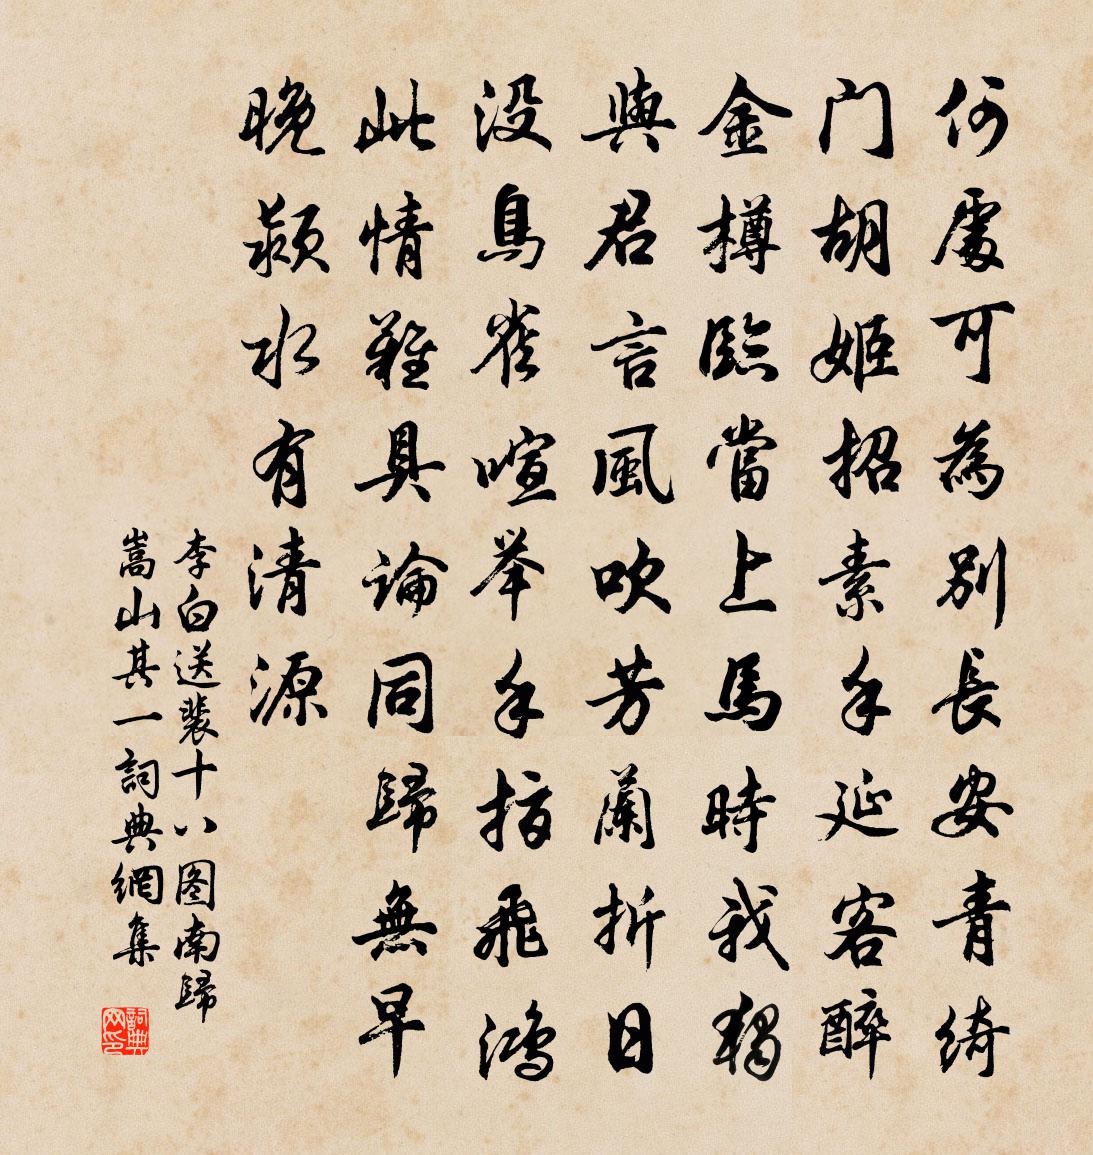 何處可為別長安青綺
门胡姬招素手延客醉
金樽臨當上馬時我獨
與君言風吹芳蘭折日
没鳥雀喧举手指飛鴻
此情難具論同歸無早
晚潁水有清源
李白送裴十八图南歸
嵩山其一詞典網集
詞典网印